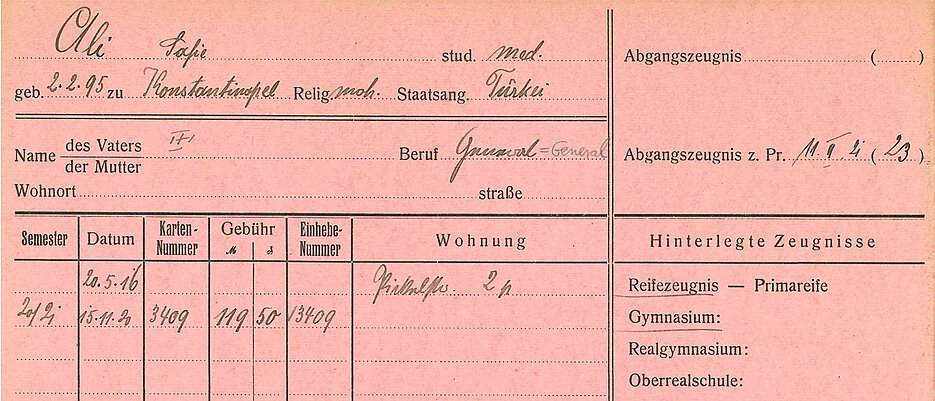 Ali Safie stud. med.
geb. 2.2.95 zu Konstantinopel Relig. moh. Staatsang. Türkei
Name des Vaters
der Mutter
Beruf General
Wohnort straße
Abgangszeugnis ( )
Abgangszeugnis z. Pr. 11 II 21 (23)
Semester Datum Karten-Nummer Gebühr M ₰ Einhebe-Nummer Wohnung
20.5.16 2 p
20/21 15.11.20 3409 119 50 13409
Hinterlegte Zeugnisse
Reifezeugnis — Primareife
Gymnasium:
Realgymnasium:
Oberrealschule: